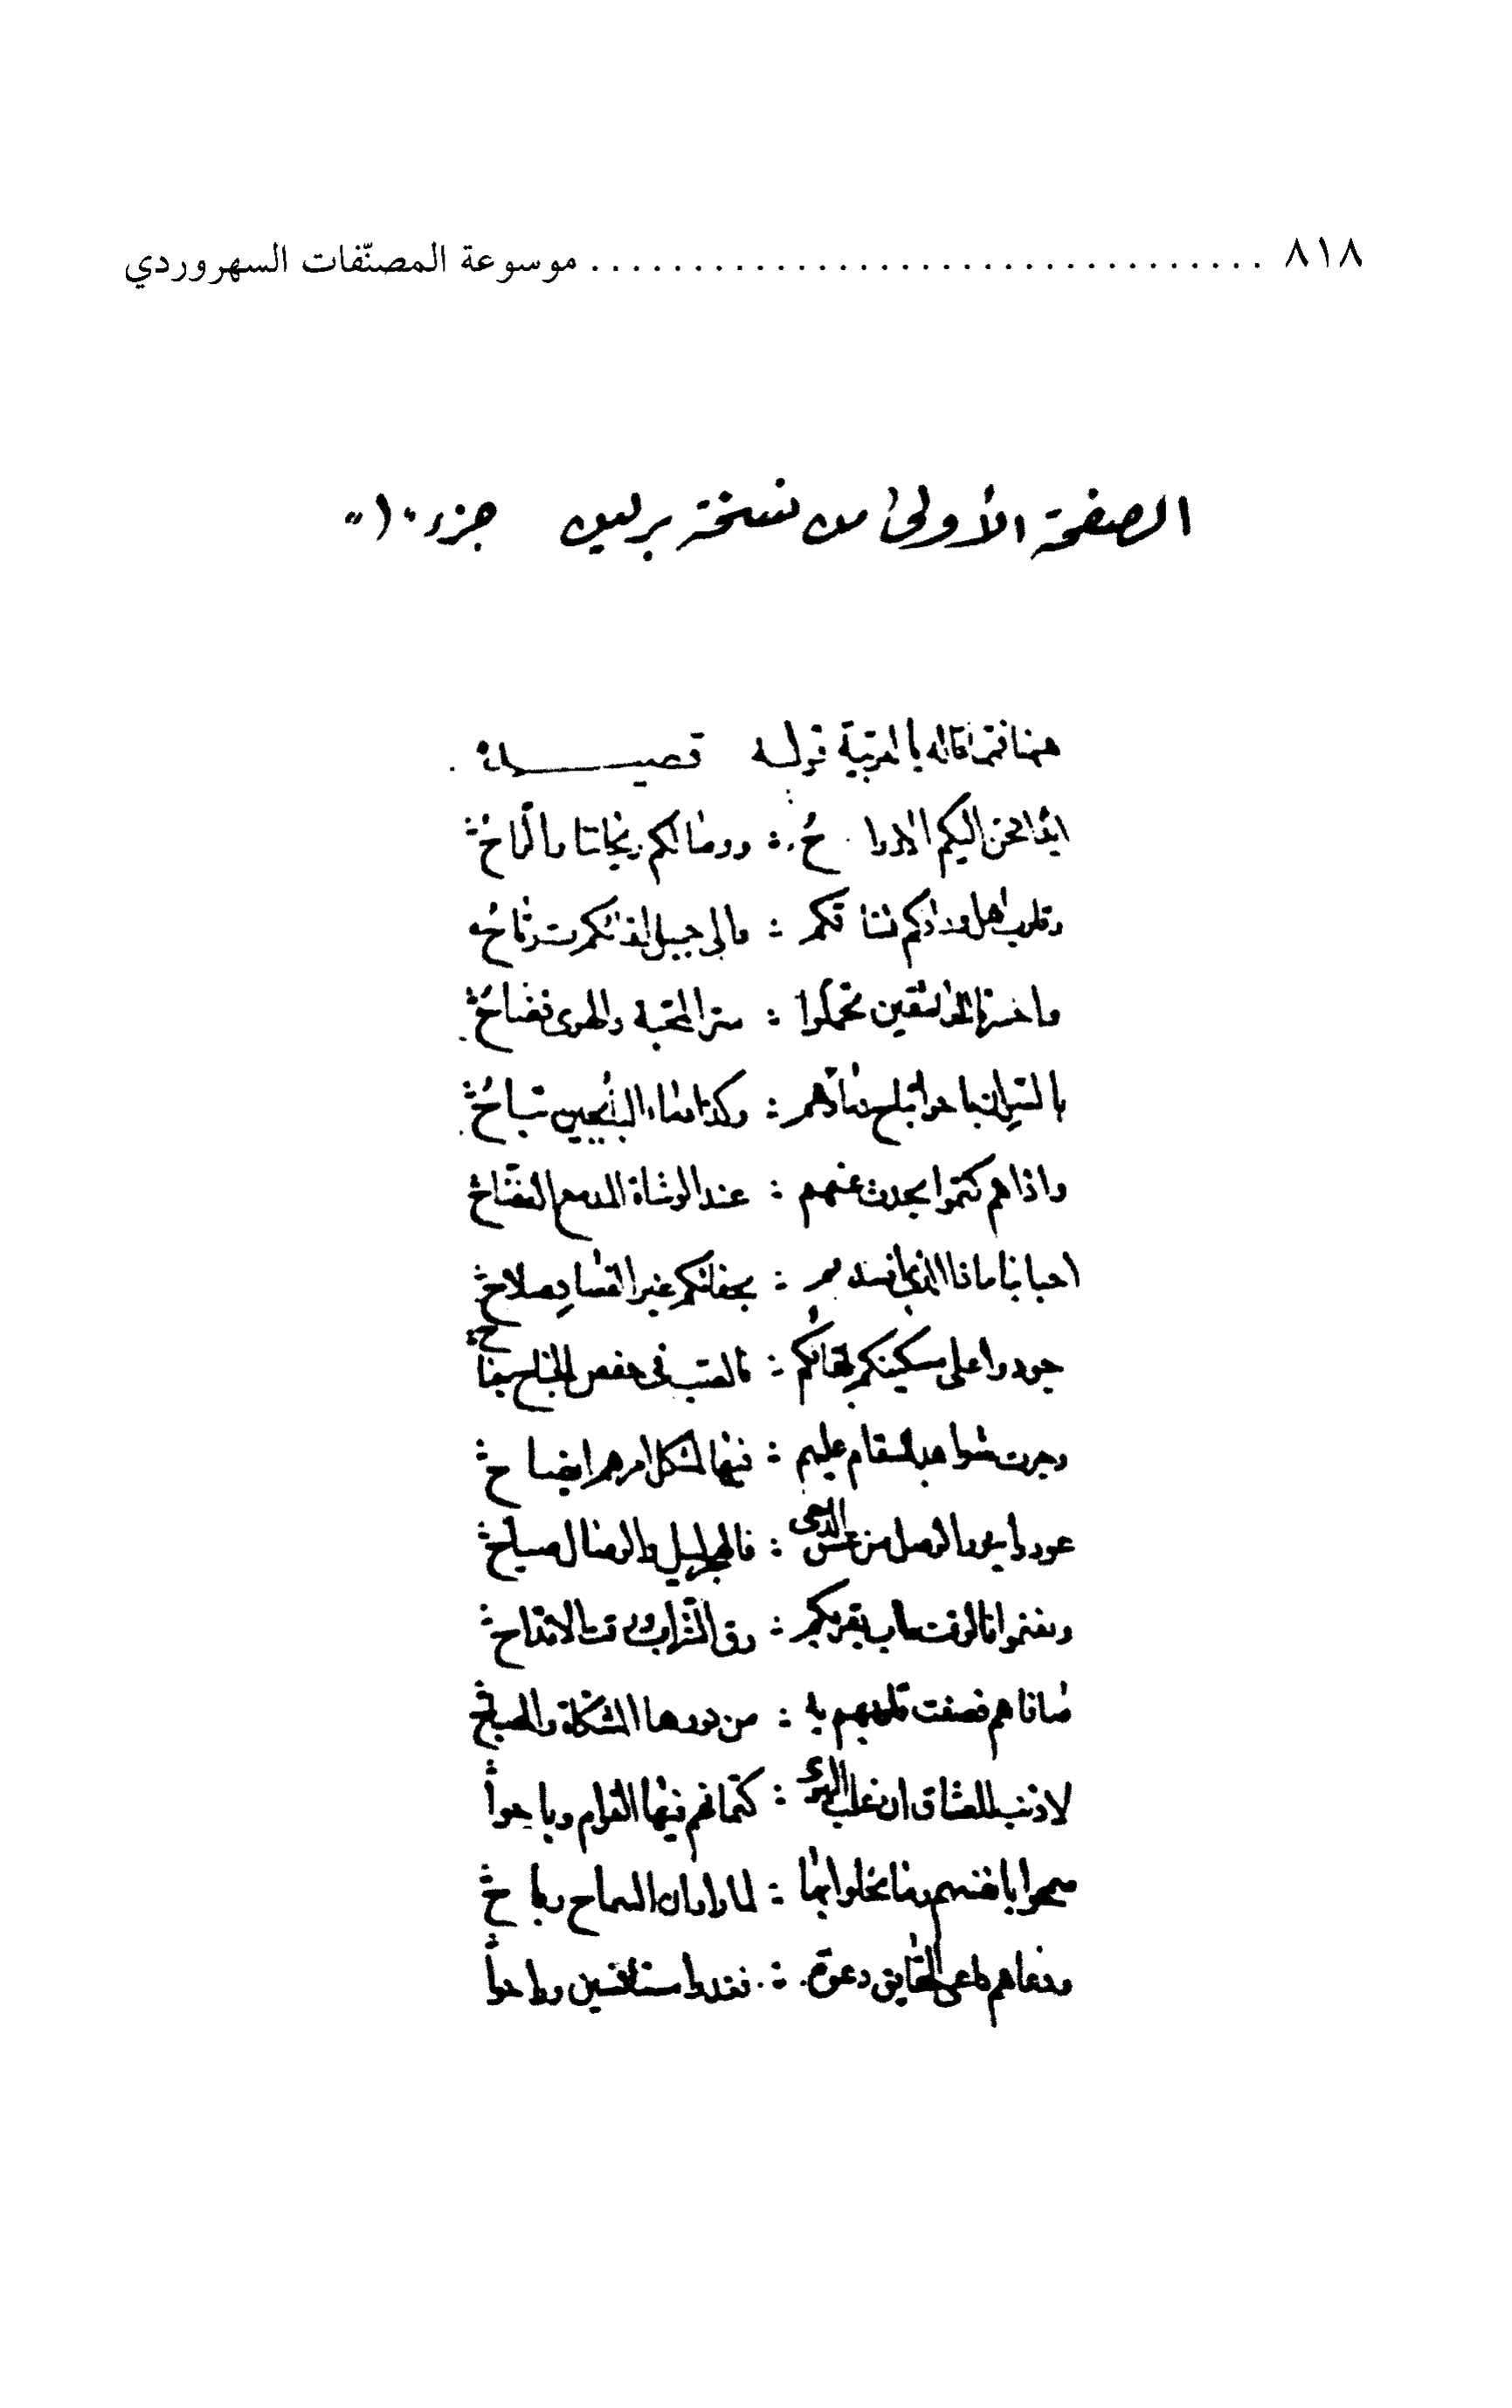 ٨١٨ ................................ موسوعة المصنّفات السهروردي
الصفحة الأولى من نسخة برلين جزء "١"
قاله بالعربية قوله قصيدة
ابدا تحن اليكم الاروا ح ؛ ووصالكم ريحانها والراح
وقلوب اهل ودادكم تشتاقكم ؛ والى جميل لقائكم ترتاح
وا للعاشقين تحملوا ؛ ستر المحبة والهوى فضاح
بالسر ان باحوا تباح دماؤهم ؛ وكذا دماء البائحين تباح
واذا هم كتموا يحدث عنهم ؛ عند الوشاة المدمع
احبابنا ماذا الذي افسدتم ؛ بجفائكم غير الفساد صلاح
جودوا على مسكينكم بلقائكم ؛ فالصب في خفض الجناح
وجرت شواهد للسقام عليهم ؛ فيها لمشكل امرهم ايضاح
عودوا بنور الوصل من غسق الدجى ؛ فالهجر ليل والوصال صباح
وتمتعوا فالوقت طاب بقربكم ؛ رق الشراب ورقت الاقداح
صافاهم فصفت قلوبهم به ؛ من نورها المشكاة والمصباح
لا ذنب للعشاق ان غلب الهوى ؛ كتمانهم فيها الغرام وباحوا
سمحوا بانفسهم وما بخلوا بها ؛ لما راوا ان السماح رباح
ودعاهم داعى الحقايق دعوة ؛ فغدوا مستانسين وراحوا